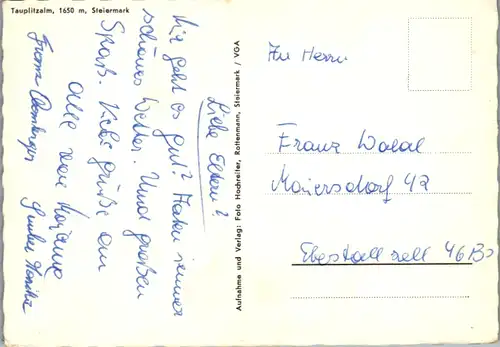 Tauplitzalm, 1650 m, Steiermark
Liebe Eltern!
Mir geht es gut! Haben immer
schönes Wetter. Und großen
Spaß. Viele Grüße an
alle von Marianne
Franz
Aufnahme und Verlag: Foto Hochreiter, Rottenmann, Steiermark / VGA
An Herrn
Franz
Maiersdorf 42
Eberstallzell 46